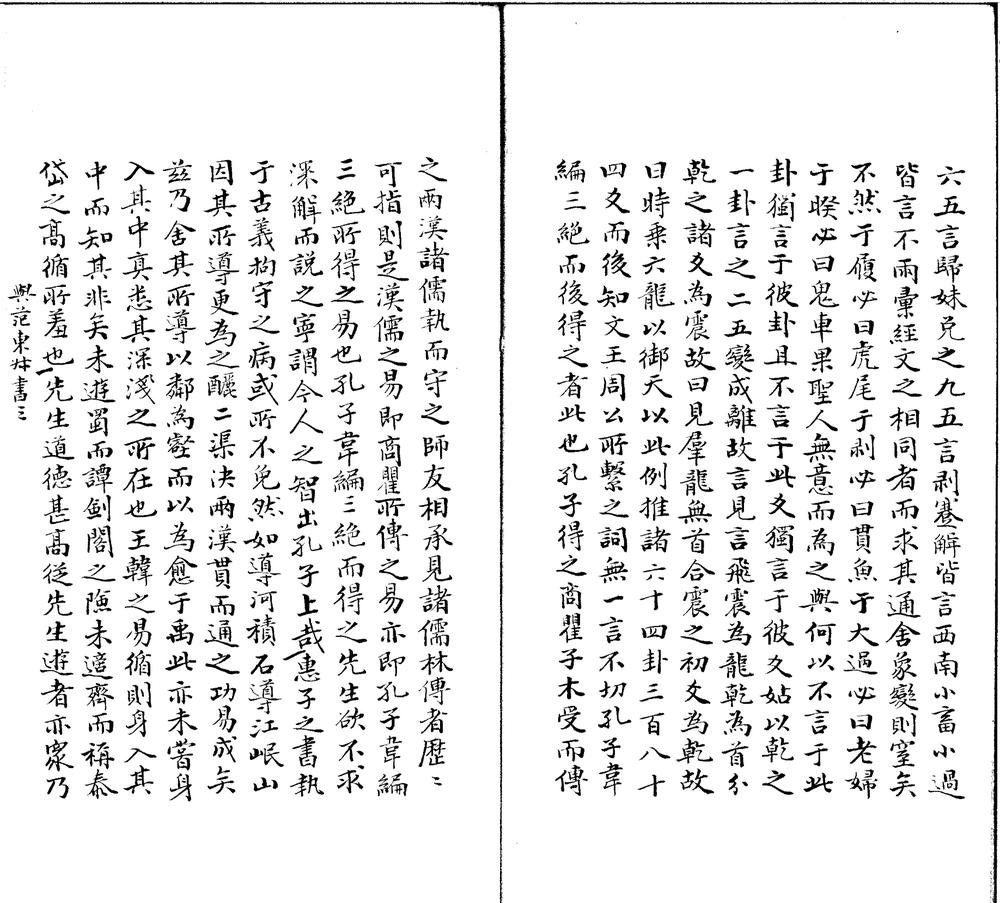 六五言歸妹兌之九五言剥蹇解皆言西南小畜小過
皆言不雨彙經文之相同者而求其通舍彖變則窒矣
不然于履必曰虎尾于剥必曰貫魚于大過必曰老婦
于睽必曰鬼車果聖人無意而為之與何以不言于此
卦獨言于彼卦且不言于此爻獨言于彼爻姑以乾之
一卦言之二五變成離故言見言飛震為龍乾為首分
乾之諸爻為震故曰見羣龍無首合震之初爻為乾故
曰時乗六龍以御天以此例推諸六十四卦三百八十
四爻而後知文王周公所繫之詞無一言不切孔子韋
編三絕而後得之者此也孔子得之商瞿子木受而傳
之兩漢諸儒執而守之師友相承見諸儒林傳者歷〻
可指則是漢儒之易即商瞿所傳之易亦即孔子韋編
三絕所得之易也孔子韋編三絕而得之先生欲不求
深解而説之寧謂今人之智出孔子上哉惠子之書執
于古義拘守之病或所不免然如導河積石導江岷山
因其所導更為之釃二渠决兩漢貫而通之功易成矣
兹乃舍其所導以鄰為壑而以為愈于禹此亦未嘗身
入其中真悉其深淺之所在也王韓之易循則身入其
中而知其非矣未遊蜀而譚劍閣之險未適齊而稱泰
岱之髙循所羞也先生道德甚髙從先生遊者亦衆乃
與范東村書三